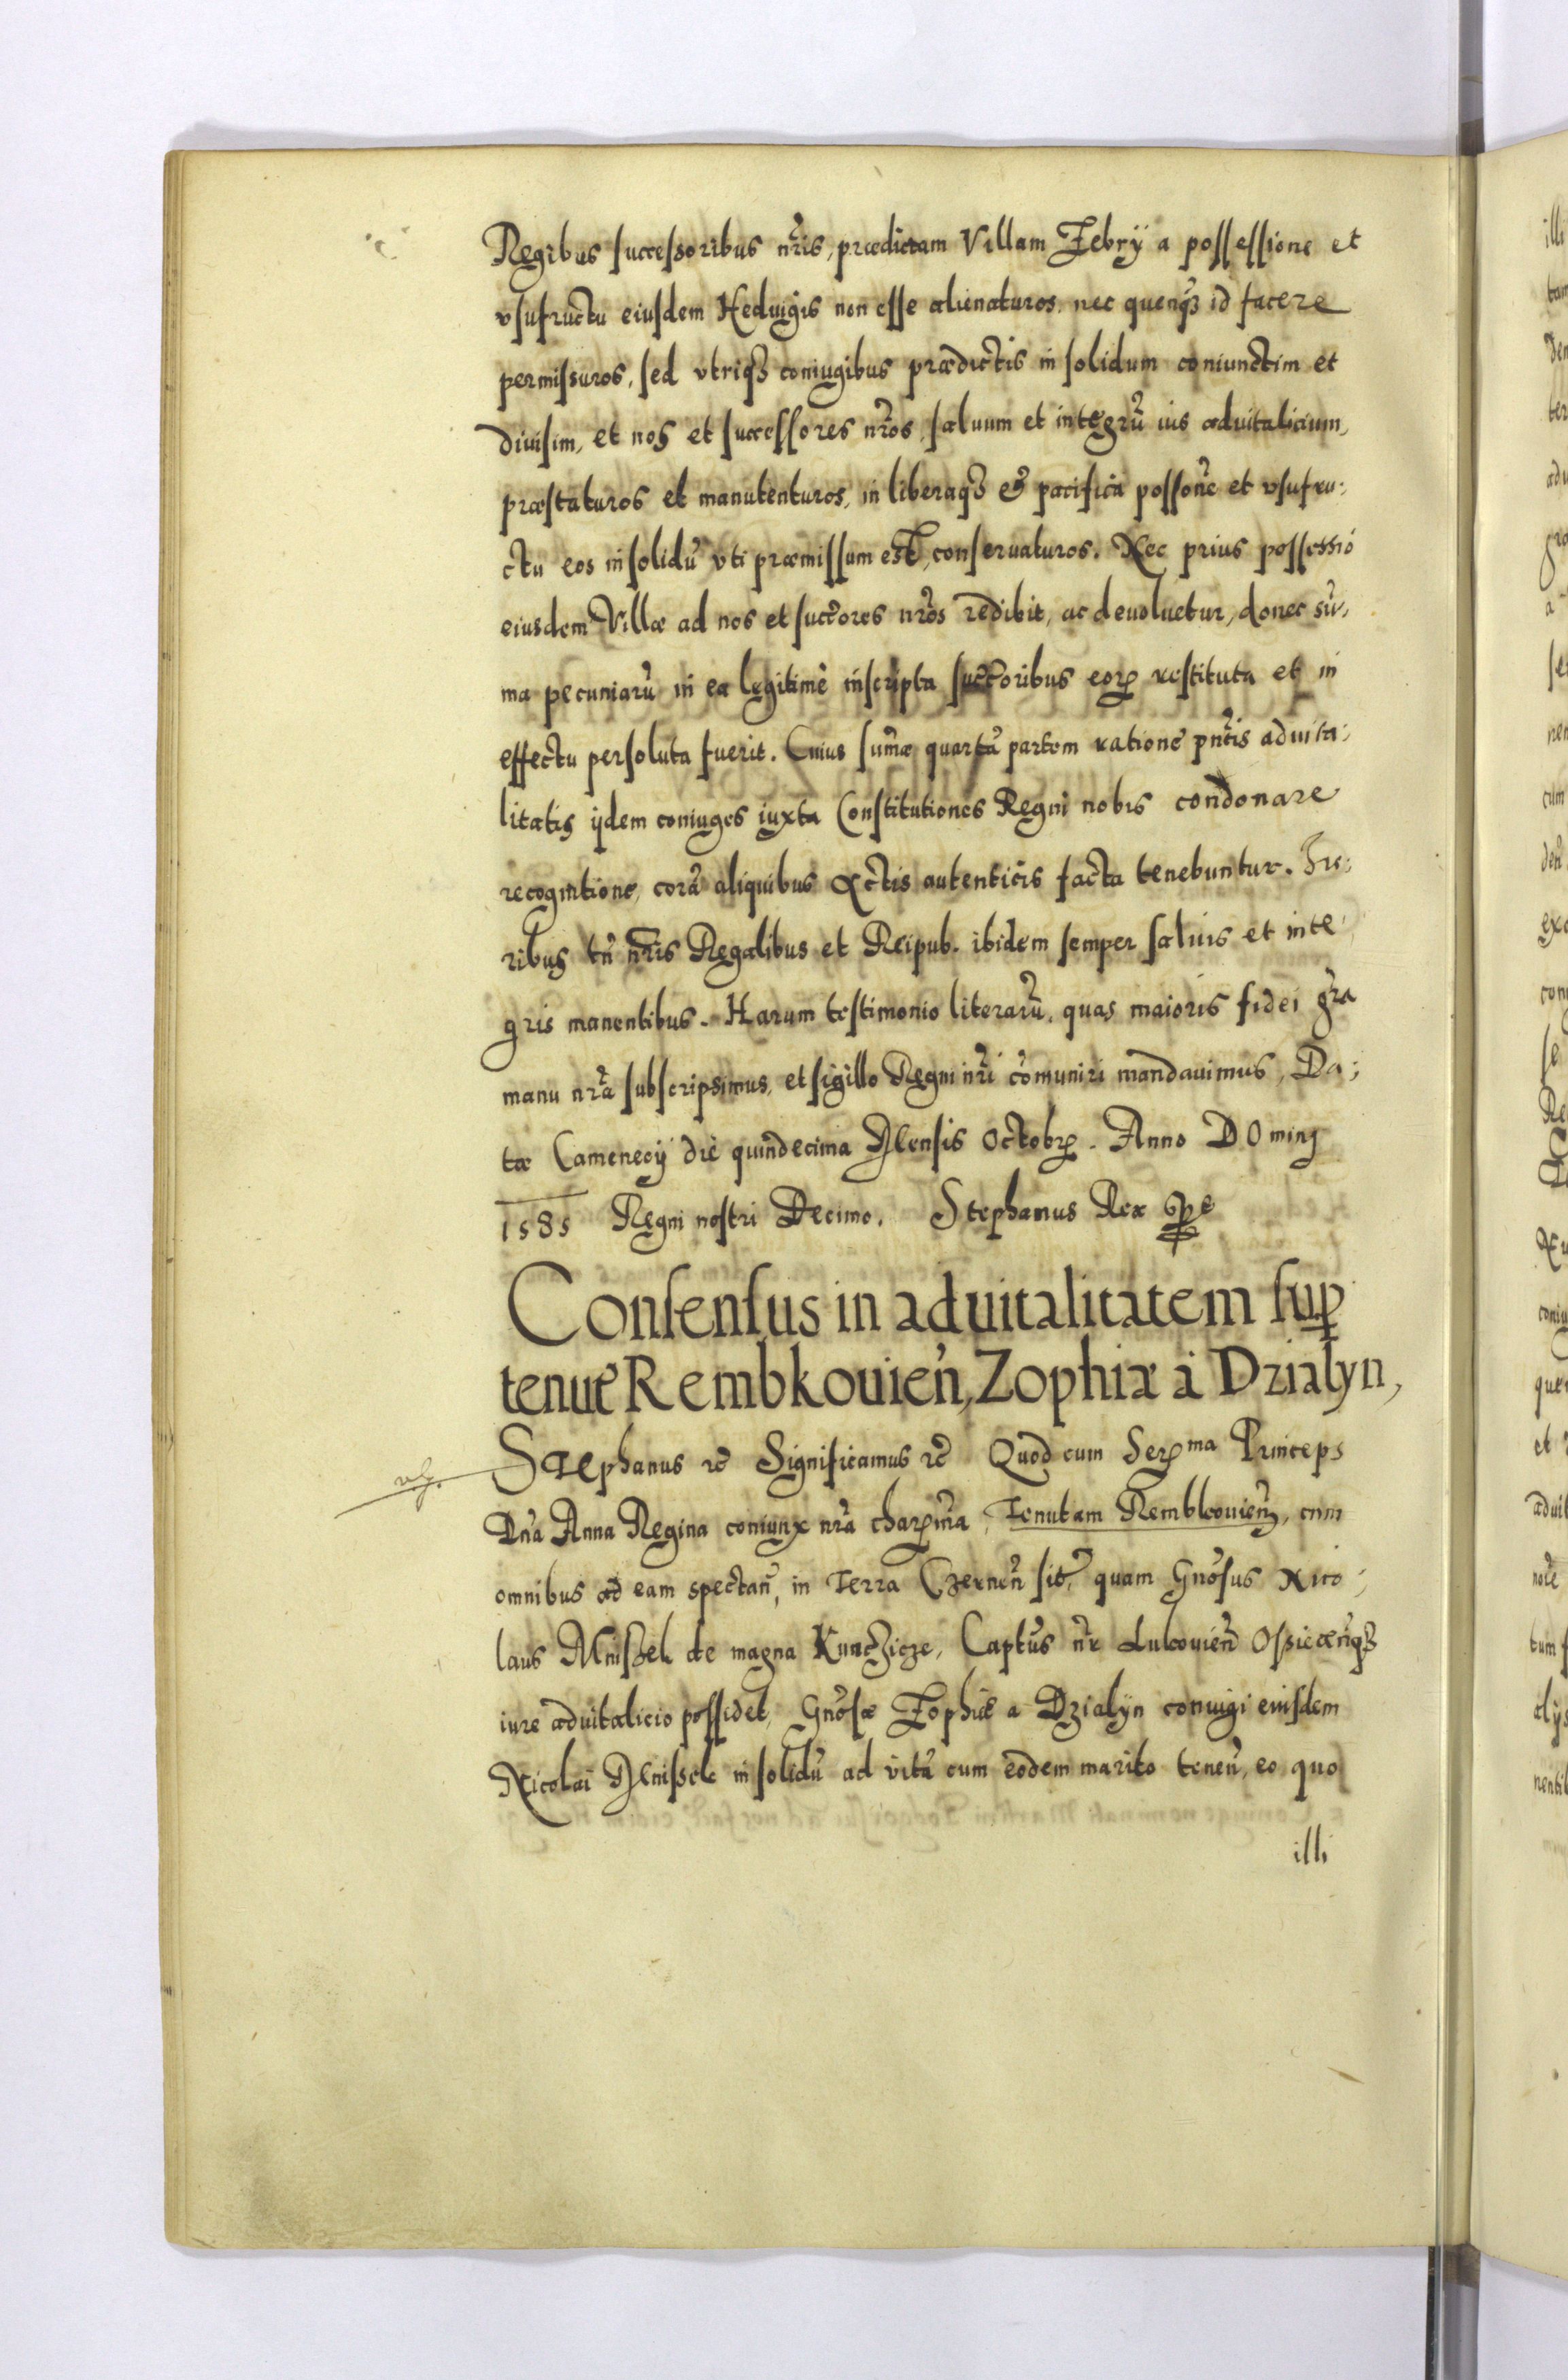 Regibus successoribus nr̃is, prædictam Villam Zebrÿ a possessione et
vsufructu eiusdem Heduigis non esse alienaturos, nec quenqȝ id facere
permissuros, sed vtrisqȝ coniugibus prædictis in solidum coniunctim et
diuisim, et nos et successores nr̃os, saluum et integrũ ius aduitalicium,
præstaturos et manutenturos, in liberaqȝ et pacifica possoñe et vsufru:
ctu eos in solidũ vti præmissum est, conseruaturos. Nec prius possessio
eiusdem Villæ ad nos et succores nr̃os redibit, ac deuoluetur, donec sũ,
ma pecuniarũ in ea legitime inscripta succoribus eorꝝ restituta et in
effectu persoluta fuerit. Cuius sum̃æ quartã partem ratione pñtis aduita:
litatis ijdem coniuges iuxta Constitutiones Regni nobis condonare
recognitione, corã aliquibus Actis autenticis facta tenebuntur. Iu:
ribus tñ nr̃is Regalibus et Reipub. ibidem semper saluis et inte
gris manentibus. Harum testimonio literarũ, quas maioris fidei gr̃a
manu nr̃a subscripsimus, et sigillo Regni nr̃i cõmuniri mandauimus, Da:
tæ Camenecij die quindecima Mensis Octobrꝝ. Anno DOminj
1585 Regni nostri Decimo. Stephanus Rex
Consensus in aduitalitatem suꝑ
tenutẽ Rembkouień, Zophiæ à Dzialyn,
STephanus &c̃ Significamus &c̃ Quod cum Serꝝma Princeps
Dña Anna Regina coniunx nr̃a charꝝma, Tenutam Rembkouieñ, cum
omnibus ad eam spectañ, in Terra Czerneñ sit̃, quam Gñosus Nico:
laus Mnißek de magna Kunczicze, Captũs nr̃ Lukouieñ Osiecenqȝ
iure aduitalicio possidet, Gñosæ Zophiæ a Dzialyn coniugi eiusdem
Nicolai Mnißek in solidũ ad vitã cum eodem marito teneñ, eo quo
illi